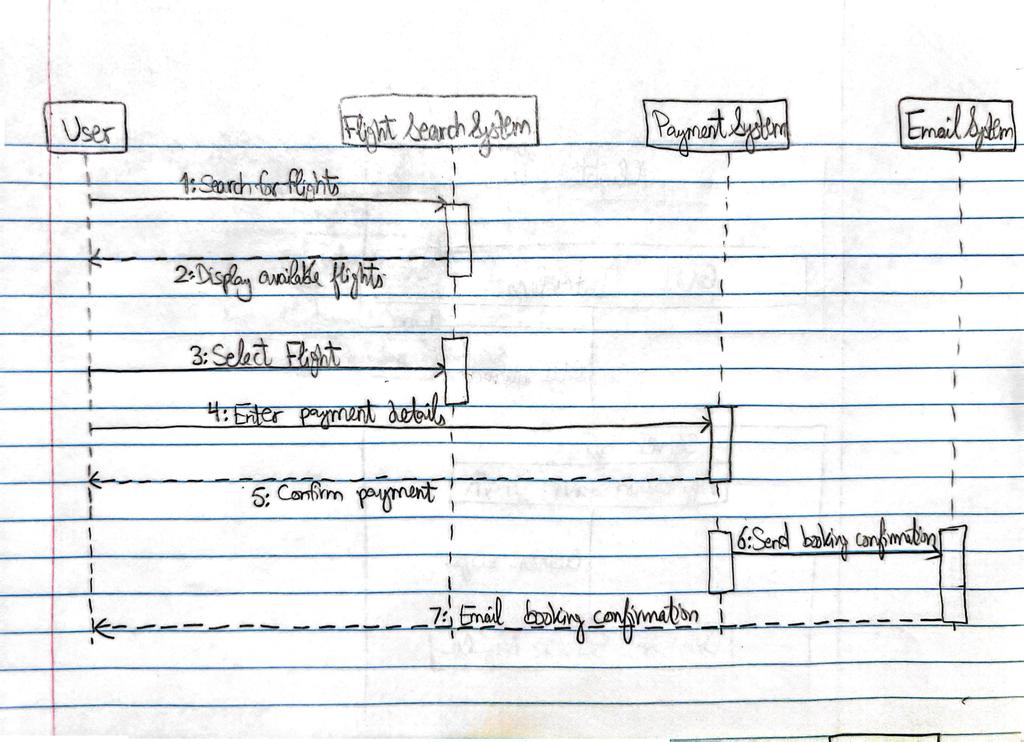 User
Flight Search System
Payment System
Email System
1: Search for flights
2: Display available flights
3: Select Flight
4: Enter payment details
5: Confirm payment
6: Send booking confirmation
7: Email booking confirmation